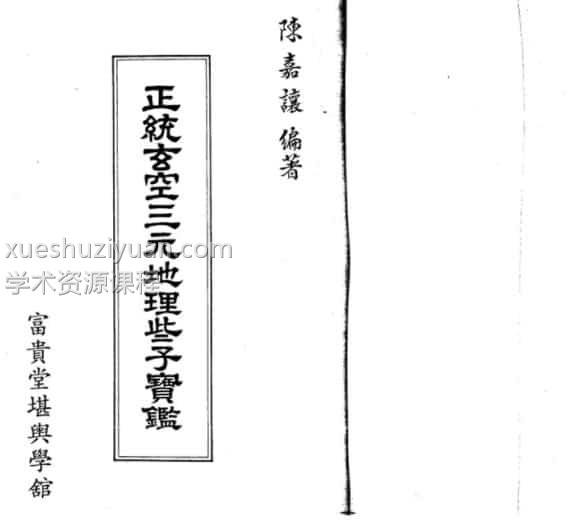 陳嘉讓 編著
正統玄空三元地理些子寶鑑
富貴堂堪輿學舘
xueshuziyuan.com
学术资源课程